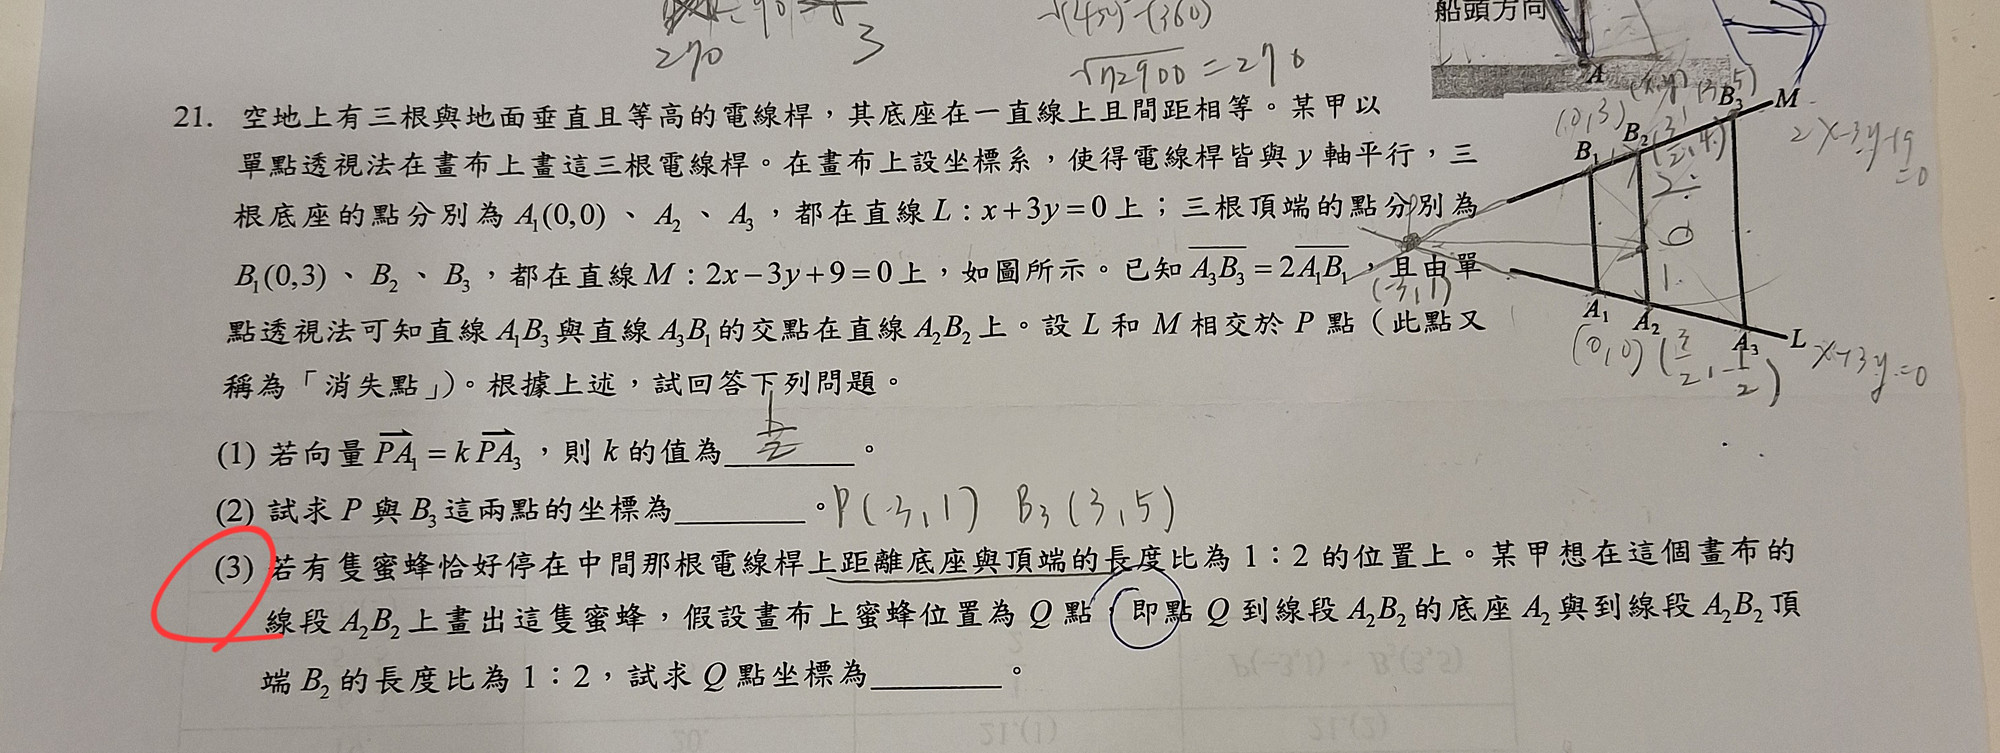 270
3
√(450)²-(360)
√72900 = 270
船頭方向
A
21. 空地上有三根與地面垂直且等高的電線桿，其底座在一直線上且間距相等。某甲以
單點透視法在畫布上畫這三根電線桿。在畫布上設坐標系，使得電線桿皆與 y 軸平行，三
根底座的點分別為 A₁(0,0) 、 A₂ 、 A₃ ，都在直線 L : x+3y=0 上；三根頂端的點分別為
B₁(0,3) 、 B₂ 、 B₃ ，都在直線 M : 2x−3y+9=0 上，如圖所示。已知 A₃B₃ = 2A₁B₁ ，且由單
點透視法可知直線 A₁B₃ 與直線 A₃B₁ 的交點在直線 A₂B₂ 上。設 L 和 M 相交於 P 點（此點又
稱為「消失點」）。根據上述，試回答下列問題。
(x,y) (3,5)
B₃
M
(0,3)
B₂
(3/2,4)
B₁
2x-3y+9=0
2
Q
1
P
(-3,1)
A₁
A₂
A₃
L
(0,0)
(3/2,-1/2)
x+3y=0
(1) 若向量 PA₁ = k PA₃ ，則 k 的值為 1/2 。
(2) 試求 P 與 B₃ 這兩點的坐標為________。P(-3,1) B₃(3,5)
(3) 若有隻蜜蜂恰好停在中間那根電線桿上距離底座與頂端的長度比為 1：2 的位置上。某甲想在這個畫布的
線段 A₂B₂ 上畫出這隻蜜蜂，假設畫布上蜜蜂位置為 Q 點，即點 Q 到線段 A₂B₂ 的底座 A₂ 與到線段 A₂B₂ 頂
端 B₂ 的長度比為 1：2，試求 Q 點坐標為________。